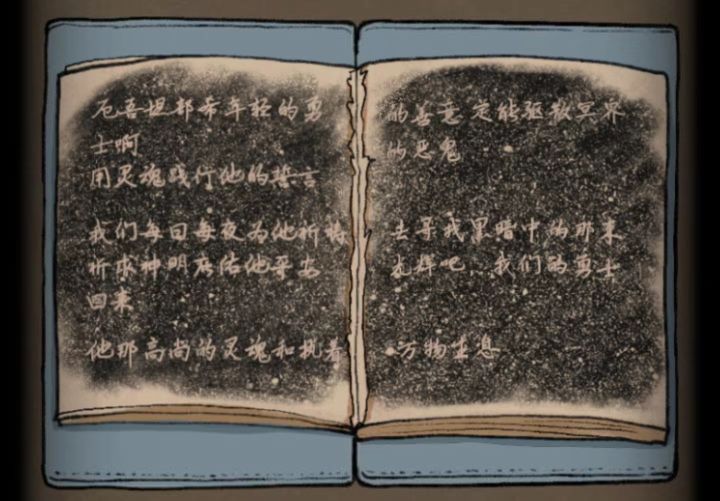 厄吾坦都希年轻的勇
士啊
用灵魂践行他的誓言
我们每日每夜为他祈祷
祈求神明庇佑他平安
回来
他那高尚的灵魂和执着
的善意定能驱散冥界
的恶鬼
去寻找黑暗中的那束
光辉吧,我们的勇士
万物生息